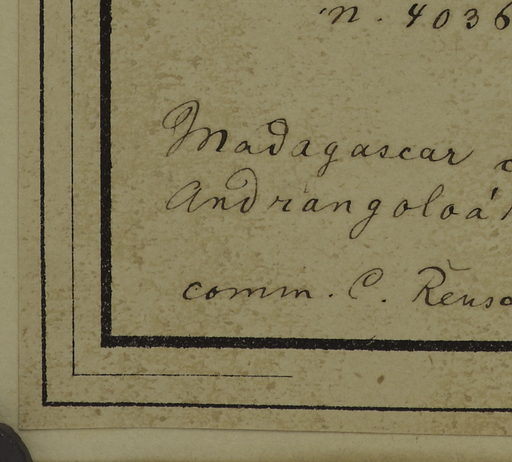 n. 4036
Madagascar
Andrangoloá
comm. C. Rensc